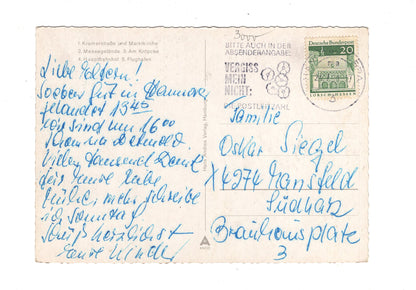 1. Kramerstraße und Marktkirche
2. Messegelände 3. Am Kröpcke
4. Hauptbahnhof 5. Flughafen
Liebe Eltern!
Soeben gut in Hannover
gelandet 13 45
von sind um 16 00
schon in Detmold.
Vielen tausend Dank
für Eure Liebe
mehr schreibe
ich Sonntag
herzlichst
Eure Kinder
3000
BITTE AUCH IN DER
ABSENDERANGABE:
VERGISS
MEIN
NICHT:
DIE POSTLEITZAHL
Deutsche Bundespost
20
LORSCH/HESSEN
Familie
Oskar Siegel
X 4274 Mansfeld
Südharz
Brauhausplatz
3